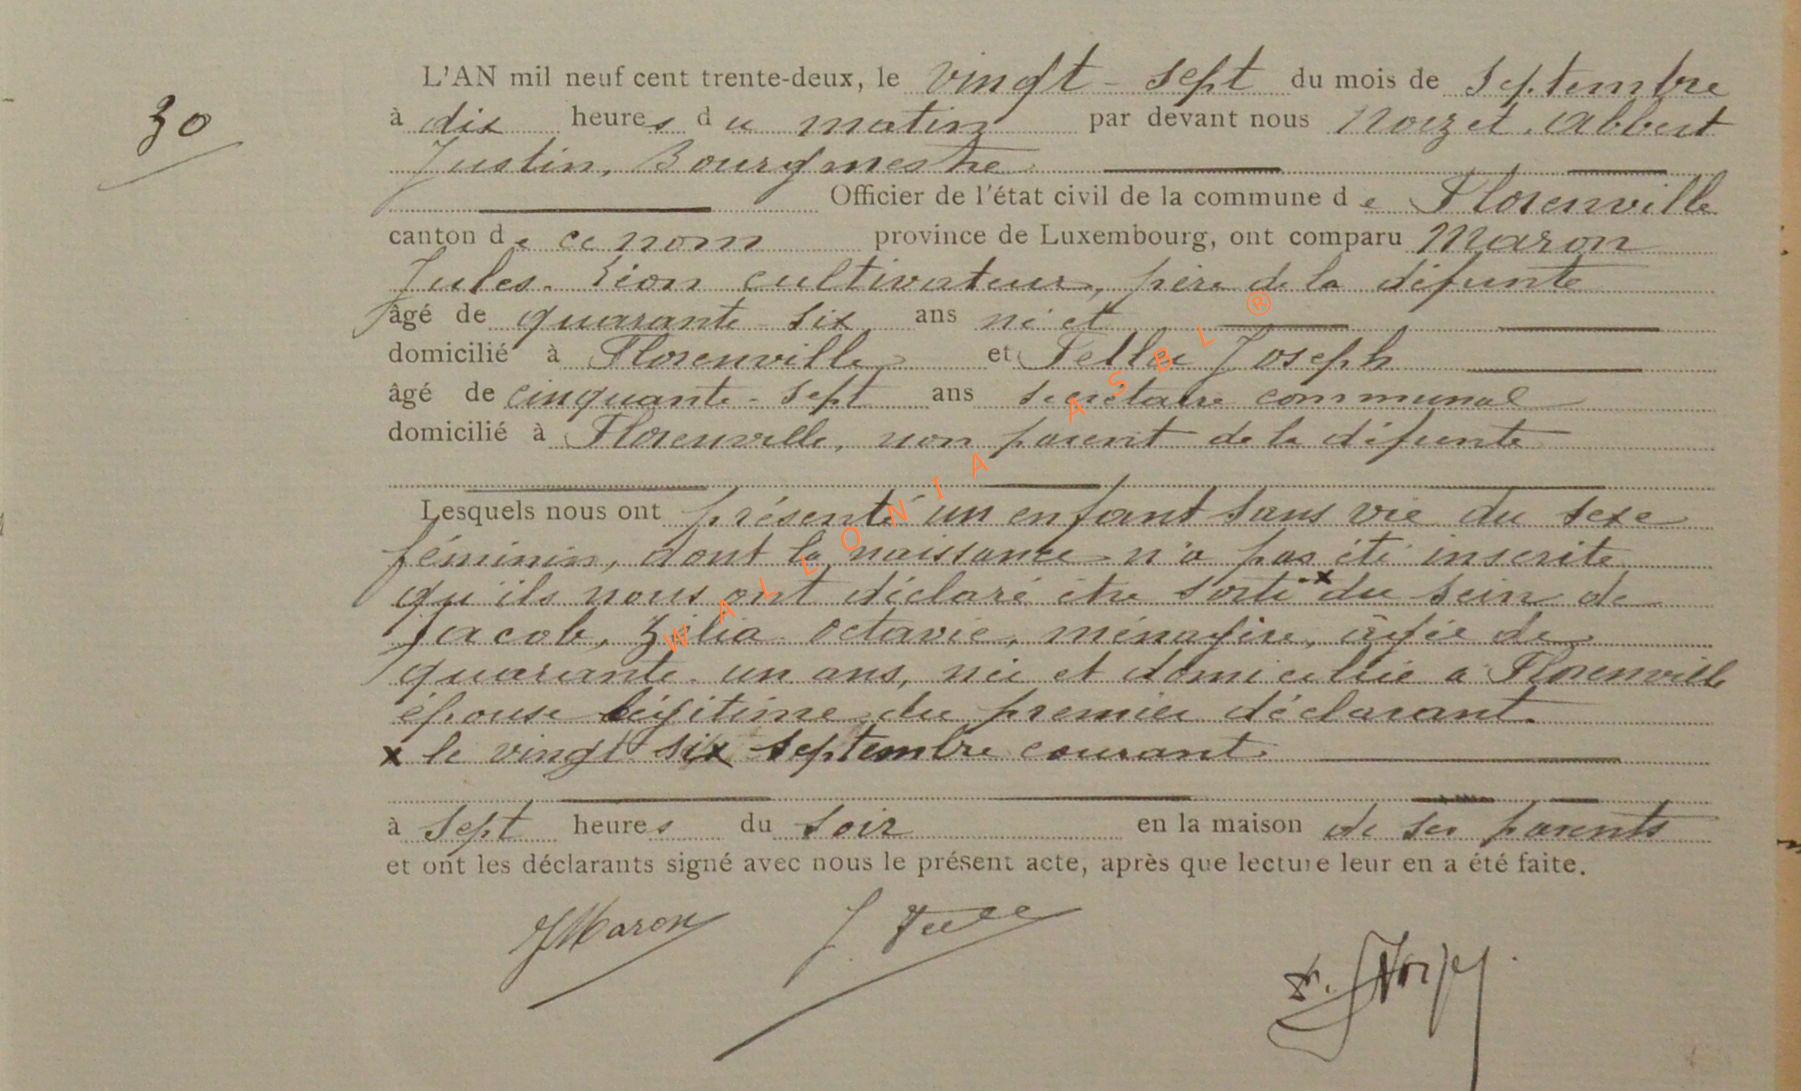 30
L'AN mil neuf cent trente-deux, le vingt-sept du mois de Septembre
à dix heures du matin par devant nous Noizet, Albert
Justin, Bourgmestre
Officier de l'état civil de la commune de Florenville
canton de ce nom province de Luxembourg, ont comparu Maron
Jules-Léon cultivateur, père de la défunte
âgé de quarante-six ans né et
domicilié à Florenville et Feller Joseph
âgé de cinquante-sept ans secrétaire communal
domicilié à Florenville, non parent de la défunte
Lesquels nous ont présenté un enfant sans vie du sexe
féminin, dont la naissance n'a pas été inscrite
qu'ils nous ont déclaré être sorti x du sein de
Jacob, Zélia Octavie, ménagère, âgée de
quarante-un ans, née et domiciliée à Florenville
épouse légitime du premier déclarant.
x le vingt six septembre courant.
à sept heures du soir en la maison de ses parents
et ont les déclarants signé avec nous le présent acte, après que lecture leur en a été faite.
JMaron J. Feller
WALLONIA ASBL ®